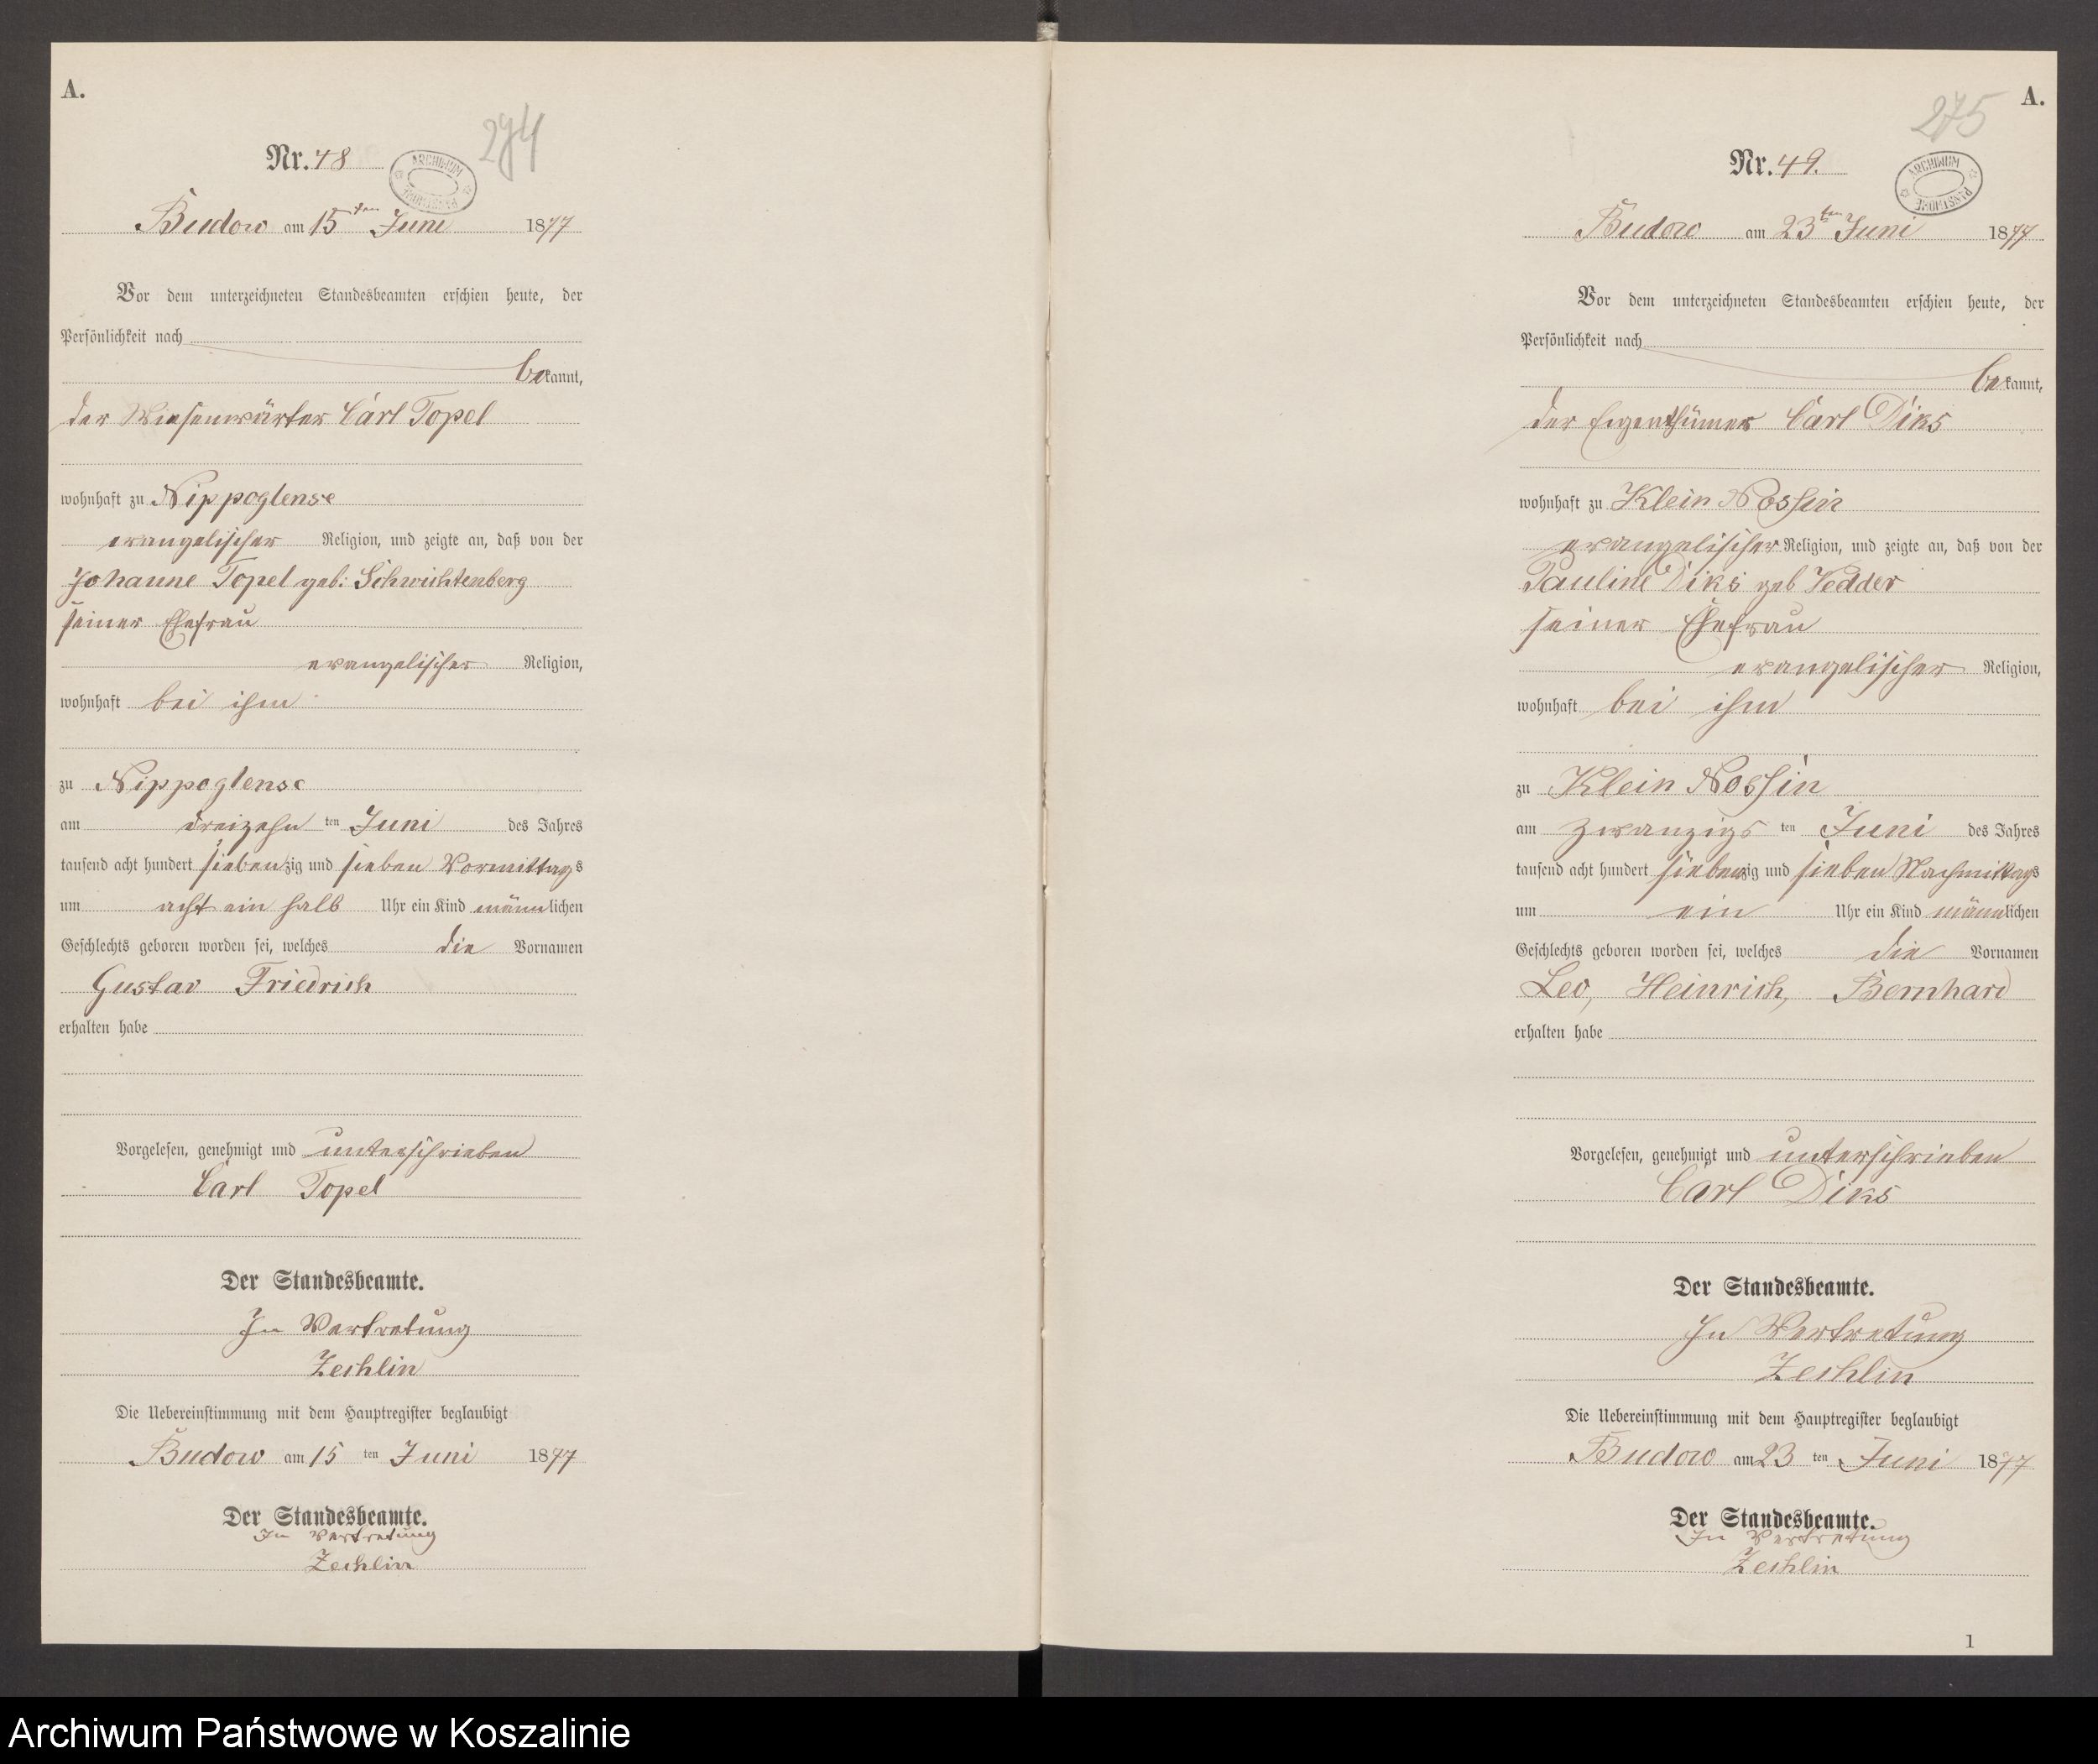 A.
274
Nr. 48
ARCHIWUM PAŃSTWOWE
Budow am 15ten Juni 1877
Vor dem unterzeichneten Standesbeamten erschien heute, der
Persönlichkeit nach
bekannt,
der Wiesenwärter Carl Topel
wohnhaft zu Nippoglense
evangelischer Religion, und zeigte an, daß von der
Johanne Topel geb: Schwichtenberg
seiner Ehefrau
evangelischer Religion,
wohnhaft bei ihm
zu Nippoglense
am dreizehn ten Juni des Jahres
tausend acht hundert siebenzig und sieben Vormittags
um acht ein halb Uhr ein Kind männlichen
Geschlechts geboren worden sei, welches die Vornamen
Gustav Friedrich
erhalten habe
Vorgelesen, genehmigt und unterschrieben
Carl Topel
Der Standesbeamte.
In Vertretung
Zechlin
Die Uebereinstimmung mit dem Hauptregister beglaubigt
Budow am 15 ten Juni 1877
Der Standesbeamte.
In Vertretung
Zechlin
A.
275
Nr. 49.
ARCHIWUM PAŃSTWOWE
Budow am 23ten Juni 1877
Vor dem unterzeichneten Standesbeamten erschien heute, der
Persönlichkeit nach
bekannt,
der Eigenthümer Carl Diks
wohnhaft zu Klein Nossin
evangelischer Religion, und zeigte an, daß von der
Pauline Diks geb Vedder
seiner Ehefrau
evangelischer Religion,
wohnhaft bei ihm
zu Klein Nossin
am zwanzigs ten Juni des Jahres
tausend acht hundert siebenzig und sieben Nachmittags
um ein Uhr ein Kind männlichen
Geschlechts geboren worden sei, welches die Vornamen
Leo, Heinrich, Bernhard
erhalten habe
Vorgelesen, genehmigt und unterschrieben
Carl Diks
Der Standesbeamte.
In Vertretung
Zechlin
Die Uebereinstimmung mit dem Hauptregister beglaubigt
Budow am 23 ten Juni 1877
Der Standesbeamte.
In Vertretung
Zechlin
1
Archiwum Państwowe w Koszalinie